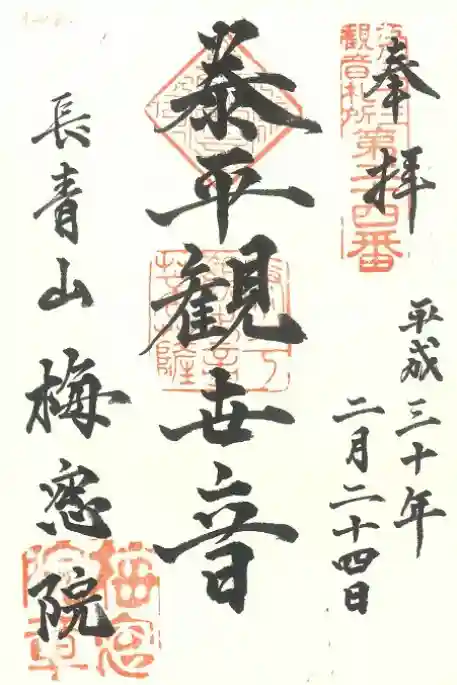 奉拝
観音札所
第二十四番
平成三十年
二月二十四日
泰平観世音
長青山梅窓院